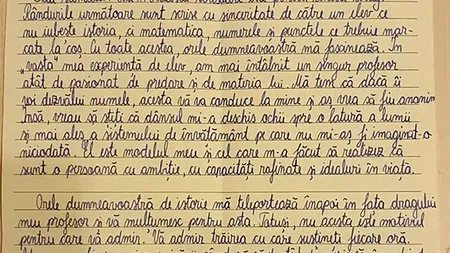 Rândurile următoare sunt scrise cu sinceritate de către un elev ce
nu iubește istoria, ci matematica, numerele și punctele ce trebuie mar-
cate la coș. Cu toate acestea, orele dumneavoastră mă fascinează. În
„vasta” mea experiență de elev, am mai întâlnit un singur profesor
atât de pasionat de predare și de materia lui. Mă tem că dacă îi
voi dezvălui numele, acesta vă va conduce la mine și aș vrea să fiu anonim
Însă, vreau să știți că dânsul mi-a deschis ochii spre o latură a lumii
și mai ales a sistemului de învățământ pe care nu mi-aș fi imaginat-o
niciodată. El este modelul meu și cel care m-a făcut să realizez că
sunt o persoană cu ambiție, cu capacități rafinate și idealuri în viață.
Orele dumneavoastră de istorie mă teleportează înapoi în fața dragului
meu profesor și vă mulțumesc pentru asta. Totuși, nu acesta este motivul
pentru care vă admir. Vă admir trăirea cu care susțineți fiecare oră.